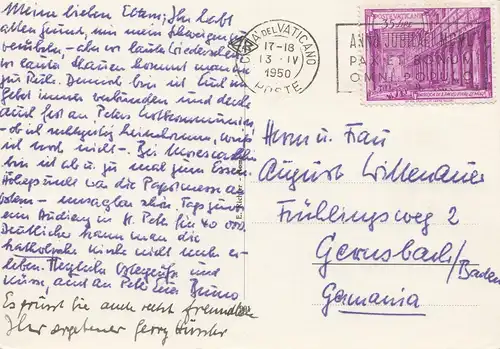 Meine lieben Eltern; Ihr habt
allen Grund, mir mein Schweigen zu
verübeln - aber vor lauter Wiedersehen
vor lauter schauen kommt man nicht
zur Ruhe. Dennoch bin ich Euch im
Gebet immer verbunden und denke
auch fest an Peters Erstkommunion
- ob ich rechtzeitig heimkomme, weiss
ich noch nicht -. Bei
bin ich ab u. zu mal zum Essen
war die Papstmesse an
Ostern - unsagbar schön. Tags zuvor
eine Audienz in St. Peter für 40 000.
Deutlicher kann man die
katholische Kirche nicht mehr er-
leben. Herzliche und
Küsse, auch an Pete Euer Bruno
Es grüsst Sie auch recht freundlich
Ihr ergebener Georg
CITTÀ DEL VATICANO
17-18
13 · IV
1950
POSTE
ANNO IUBILAEI
PAX ET BONUM
Herrn u. Frau
August Wittenauer
Frühlingsweg 2
Gernsbach/Baden
Germania